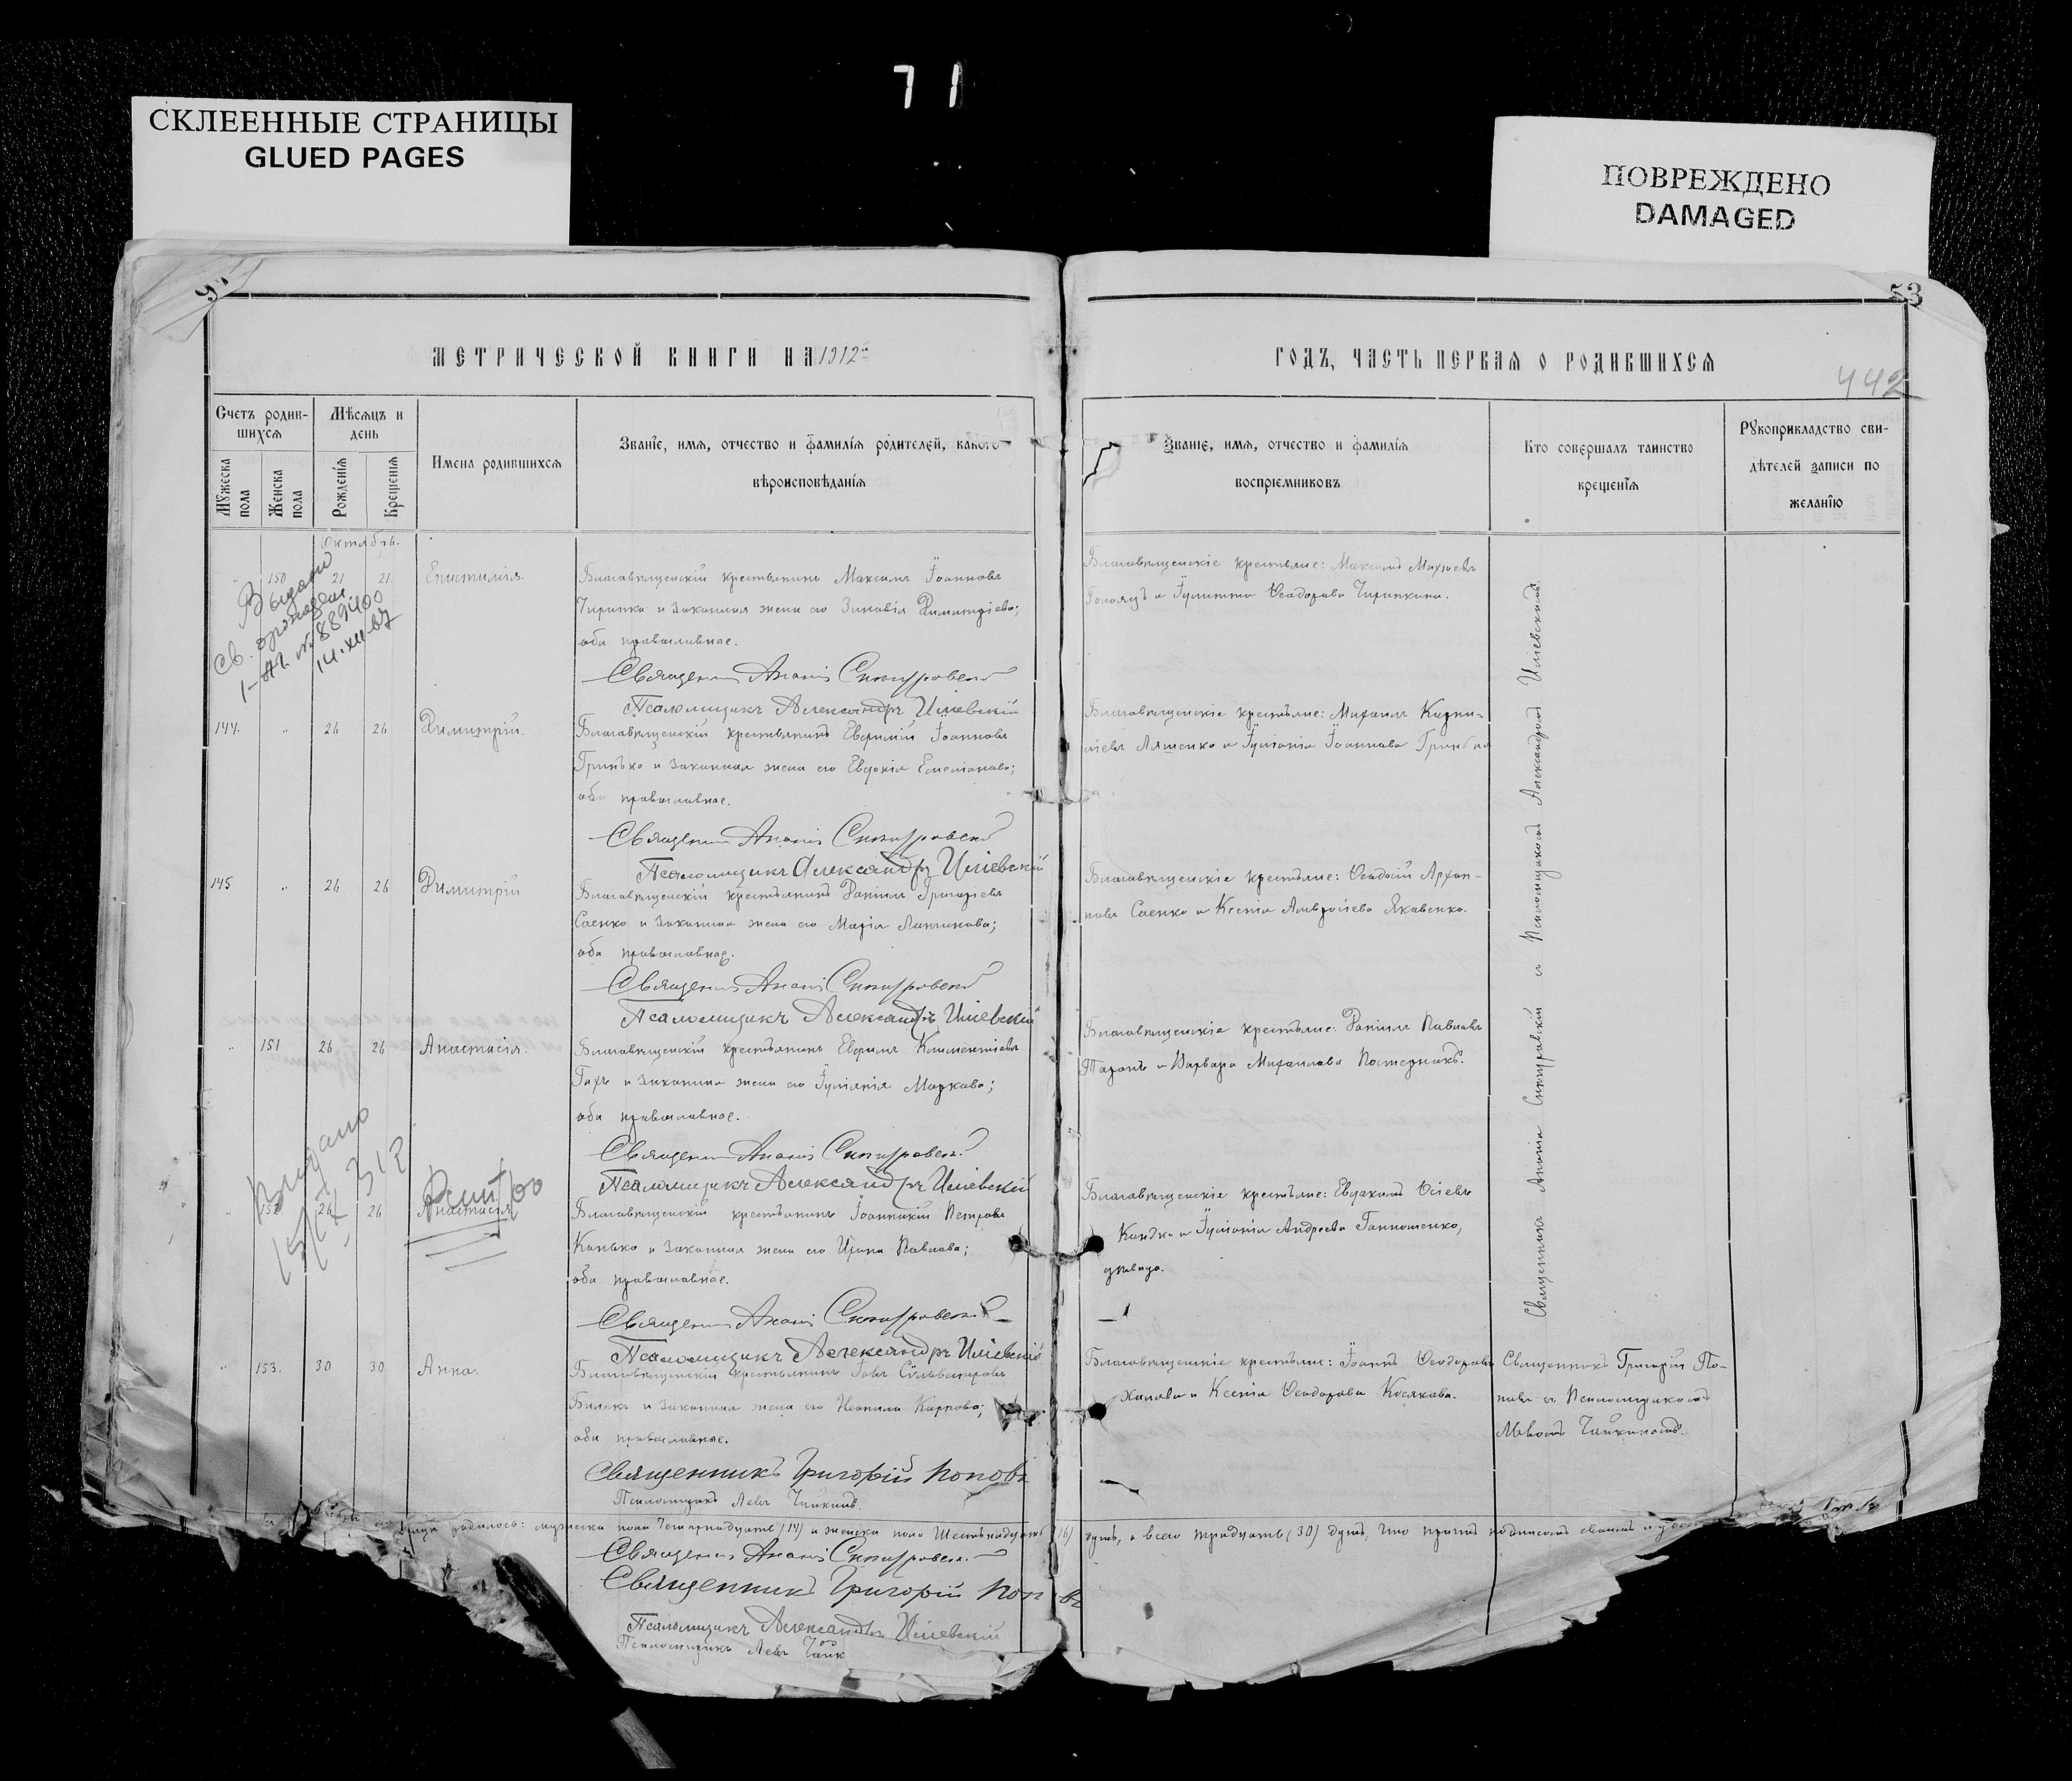 71
СКЛЕЕННЫЕ СТРАНИЦЫ
GLUED PAGES
ПОВРЕЖДЕНО
DAMAGED
53
МЕТРИЧЕСКОЙ КНИГИ НА 1912
ГОДЪ, ЧАСТЬ ПЕРВАЯ О РОДИВШИХСЯ
442
Счетъ родив-
шихся
Мужеска пола
Женска пола
Мѣсяцъ и
день
Рожденія
Крещенія
Имена родившихся
Званіе, имя, отчество и фамилія родителей, какого
вѣроисповѣданія
Званіе, имя, отчество и фамилія
воспріемниковъ
Кто совершалъ таинство
крещенія
Рукоприкладство сви-
дѣтелей записи по
желанію
Октябрь.
" 150 21 21 Епистимія.
Выдано
Св. о рожден.
1-АГ. № 889400
14.XII.67
Благовѣщенскій крестьянинъ Максимъ Іоанновъ
Чирипка и законная жена его Зиновія Димитріева;
оба православные.
Священникъ Ананія Снѣгуровскій
Псаломщикъ Александръ Илiевскій
Благовѣщенскіе крестьяне: Максимъ
и Іулитта Ѳеодорова Чирипкина.
144. " 26 26 Димитрій.
Благовѣщенскій крестьянинъ Евфимій Іоанновъ
Гринько и законная жена его Евдокія Емеліанова;
оба православные.
Священникъ Ананія Снѣгуровскій
Псаломщикъ Александръ Илiевскій
Благовѣщенскіе крестьяне: Михаилъ Корни-
ліевъ Ляшенко и Іуліанія Іоаннова Гринько
145 " 26 26 Димитрій
Благовѣщенскій крестьянинъ Даніилъ Григоріевъ
Саенко и законная жена его Марія Логгинова;
оба православные.
Священникъ Ананія Снѣгуровскій
Псаломщикъ Александръ Илiевскій
Благовѣщенскіе крестьяне: Ѳеодосій Архип-
повъ Саенко и Ксенія Амвросіева Яковенко.
" 151 26 26 Анастасія.
Благовѣщенскій крестьянинъ Евфимъ Климентіевъ
и законная жена его Іуліанія Маркова;
оба православные.
Священникъ Ананія Снѣгуровскій
Псаломщикъ Александръ Илiевскій
Благовѣщенскіе крестьяне: Даніилъ Павловъ
Таранъ и Варвара Михаилова Пастернакъ.
Выдано
312
" 152 26 26 Анастасія
Благовѣщенскій крестьянинъ Іоанникій Петровъ
Конько и законная жена его Ирина Павлова;
оба православные.
Священникъ Ананія Снѣгуровскій
Псаломщикъ Александръ Илiевскій
Благовѣщенскіе крестьяне: Евдокимъ
и Іуліанія Андреева Гапношенко,
дѣвица.
Священникъ Ананія Снѣгуровскій и Псаломщикомъ Александромъ Илiевскимъ
" 153. 30 30 Анна.
Благовѣщенскій крестьянинъ Іовъ Сильвестровъ
Билыкъ и законная жена его Неонила Карпова;
оба православные.
Священникъ Григорій Поповъ
Псаломщикъ Левъ Чайкинъ.
Благовѣщенскіе крестьяне: Іоаннъ Ѳеодоровъ
и Ксенія Ѳеодорова Косякова.
Священникъ Григорій По-
повъ съ Псаломщикомъ
Львомъ Чайкинымъ.
родилось: мужеска пола Четырнадцать (14) и женска пола Шестнадцать (16) душъ, а всего тридцать (30) душъ, что причтъ подписомъ своимъ и
Священникъ Ананія Снѣгуровскій
Священникъ Григорій Поповъ
Псаломщикъ Александръ Илiевскій
Псаломщикъ Левъ Чайк